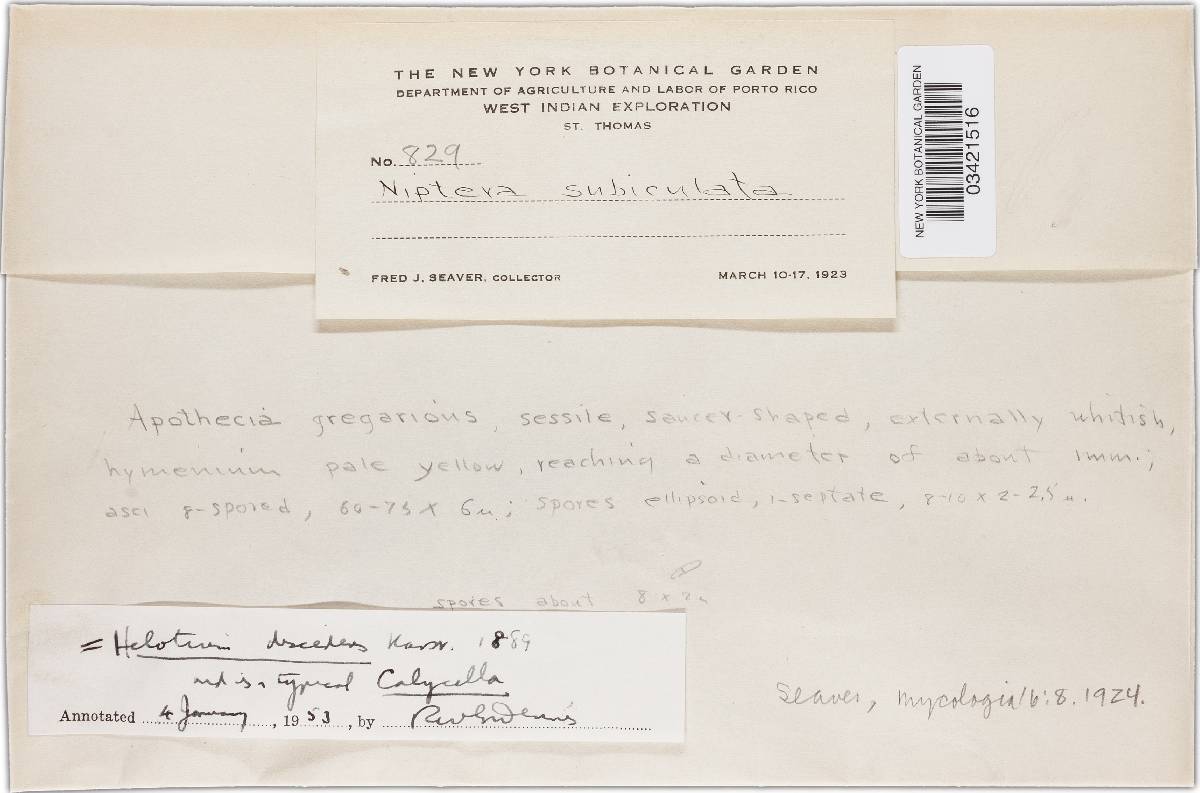 THE NEW YORK BOTANICAL GARDEN
DEPARTMENT OF AGRICULTURE AND LABOR OF PORTO RICO
WEST INDIAN EXPLORATION
ST. THOMAS
No. 829
Niptera subiculata
FRED J. SEAVER, COLLECTOR
MARCH 10-17, 1923
NEW YORK BOTANICAL GARDEN
03421516
Apothecia gregarious, sessile, saucer-shaped, externally whitish,
hymenium pale yellow, reaching a diameter of about 1mm.;
asci 8-spored, 60-75 x 6µ; spores ellipsoid, 1-septate, 8-10 x 2-2.5µ.
spores about 8 x 2µ
= Helotium Karst. 1889
and is a typical Calycella
Annotated 4 January, 1953, by RWG Dennis
Seaver, Mycologia 16:8. 1924.